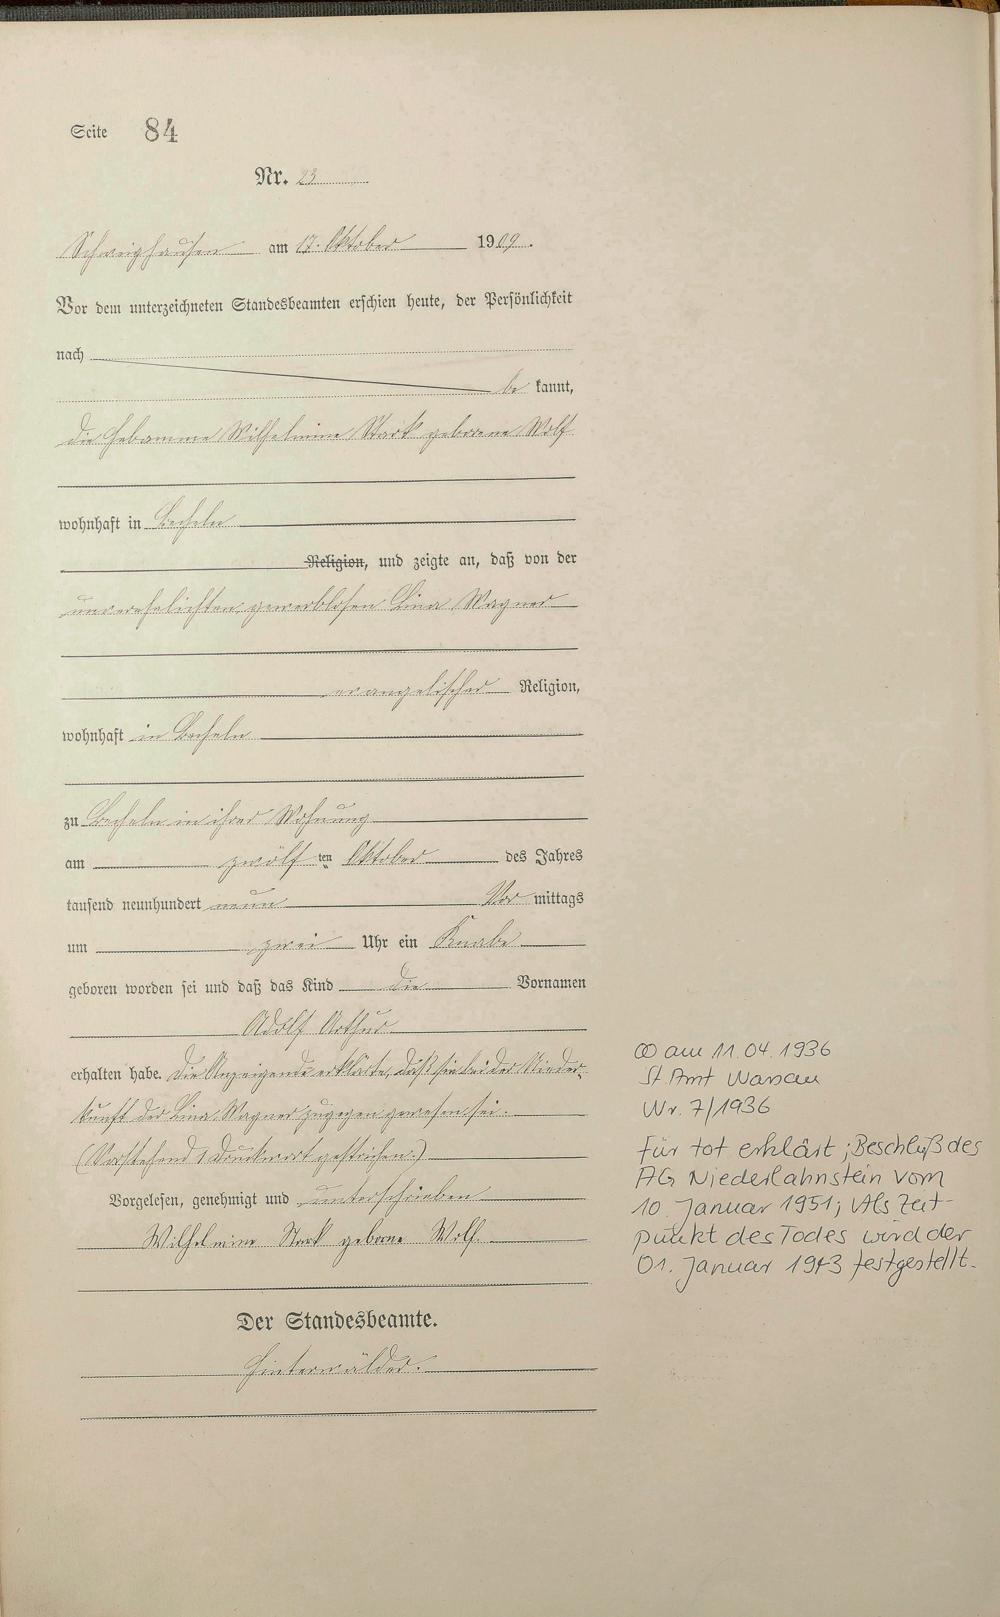 Seite 84
Nr. 23
Schweighausen am 17. Oktober 1909.
Vor dem unterzeichneten Standesbeamten erschien heute, der Persönlichkeit
nach
be kannt,
die Hebamme Wilhelmine Stark geborene Wolf
wohnhaft in Becheln
Religion, und zeigte an, daß von der
unverehelichten, gewerblosen Lina Wagner
evangelischer Religion,
wohnhaft in Becheln
zu Becheln in ihrer Wohnung
am zwölf ten Oktober des Jahres
tausend neunhundert neun Vor mittags
um zwei Uhr ein Knabe
geboren worden sei und daß das Kind die Vornamen
Adolf Arthur
erhalten habe. Die Anzeigende erklärte, daß sie bei der Nieder-
kunft der Lina Wagner zugegen gewesen sei.
(Vorstehend 1 Druckwort gestrichen.)
Vorgelesen, genehmigt und unterschrieben
Wilhelmine Stark geborne Wolf.
Der Standesbeamte.
Hinterwälder.
∞ am 11.04.1936
St. Amt Nassau
Nr. 7/1936
Für tot erklärt; Beschluß des
AG Niederlahnstein vom
10. Januar 1951; Als Zeit-
punkt des Todes wird der
01. Januar 1943 festgestellt.